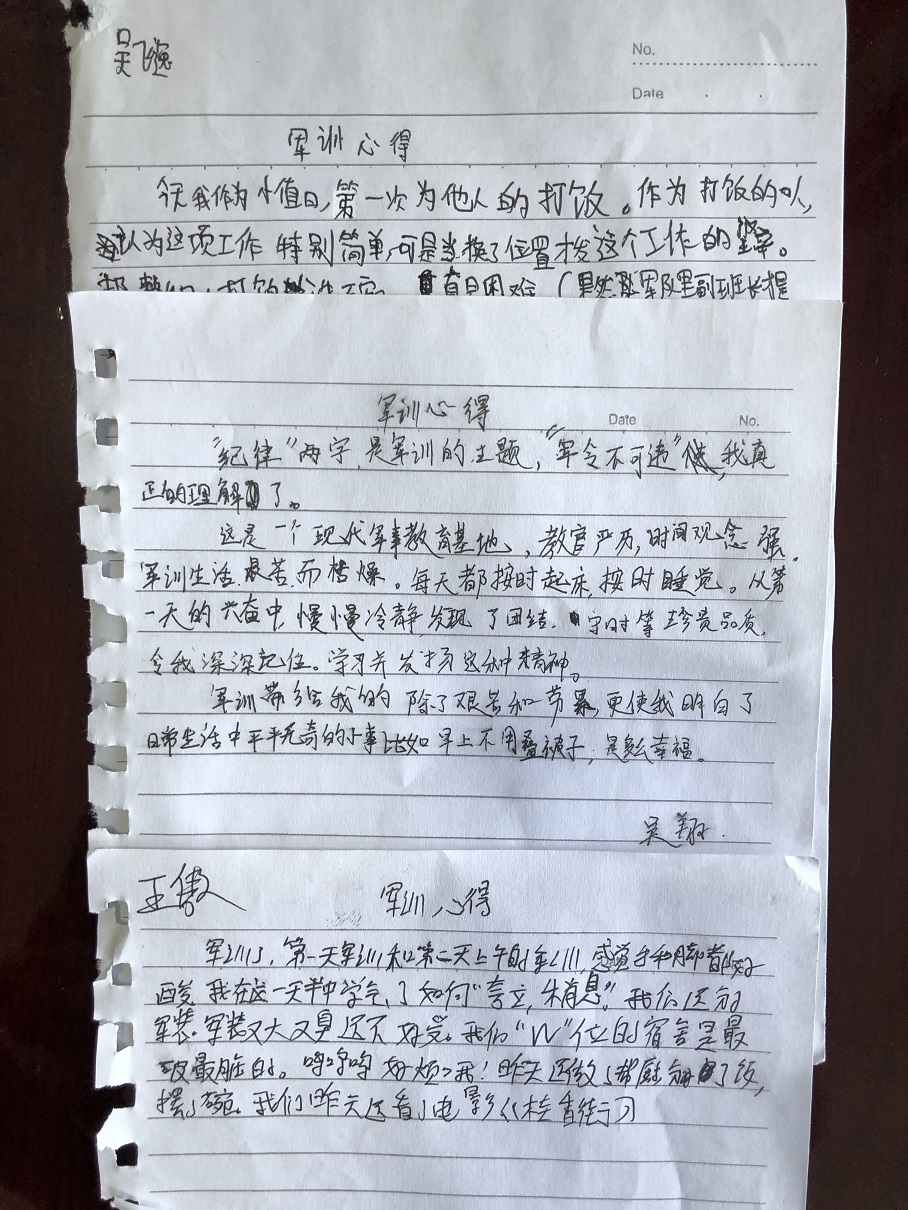 吴飞
No.
Date
军训心得
今天我作为小值日,第一次为他人的打饭。作为打饭的人,
认为这项工作特别简单,可是当换了位置接这个工作的
有困难(果然军队里副班长提
军训心得
Date No.
"纪律"两字,是军训的主题,"军令不可违"使我真
正的理解了。
这是一个现代军事教育基地,教官严厉,时间观念强。
军训生活艰苦而枯燥。每天都按时起床,按时睡觉。从第
一天的兴奋中,慢慢冷静,发现了团结、守时等珍贵品质,
令我深深记住。学习并发扬这种精神。
军训带给我的除了艰苦和劳累,更使我明白了
日常生活中平平无奇的小事比如早上不用叠被子,是多么幸福。
吴翔
王傲
军训心得
军训了,第一天军训和第二天上午的军训,感觉手和脚都好
酸,我在这一天半中学会了如何"跨立,稍息"。我们还分
军装。军装又大又臭还不好受。我们"W"位的宿舍是最
最脏的。呜呜呜好烦我!昨天还做了帮厨
摆了碗。我们昨天还看了电影《